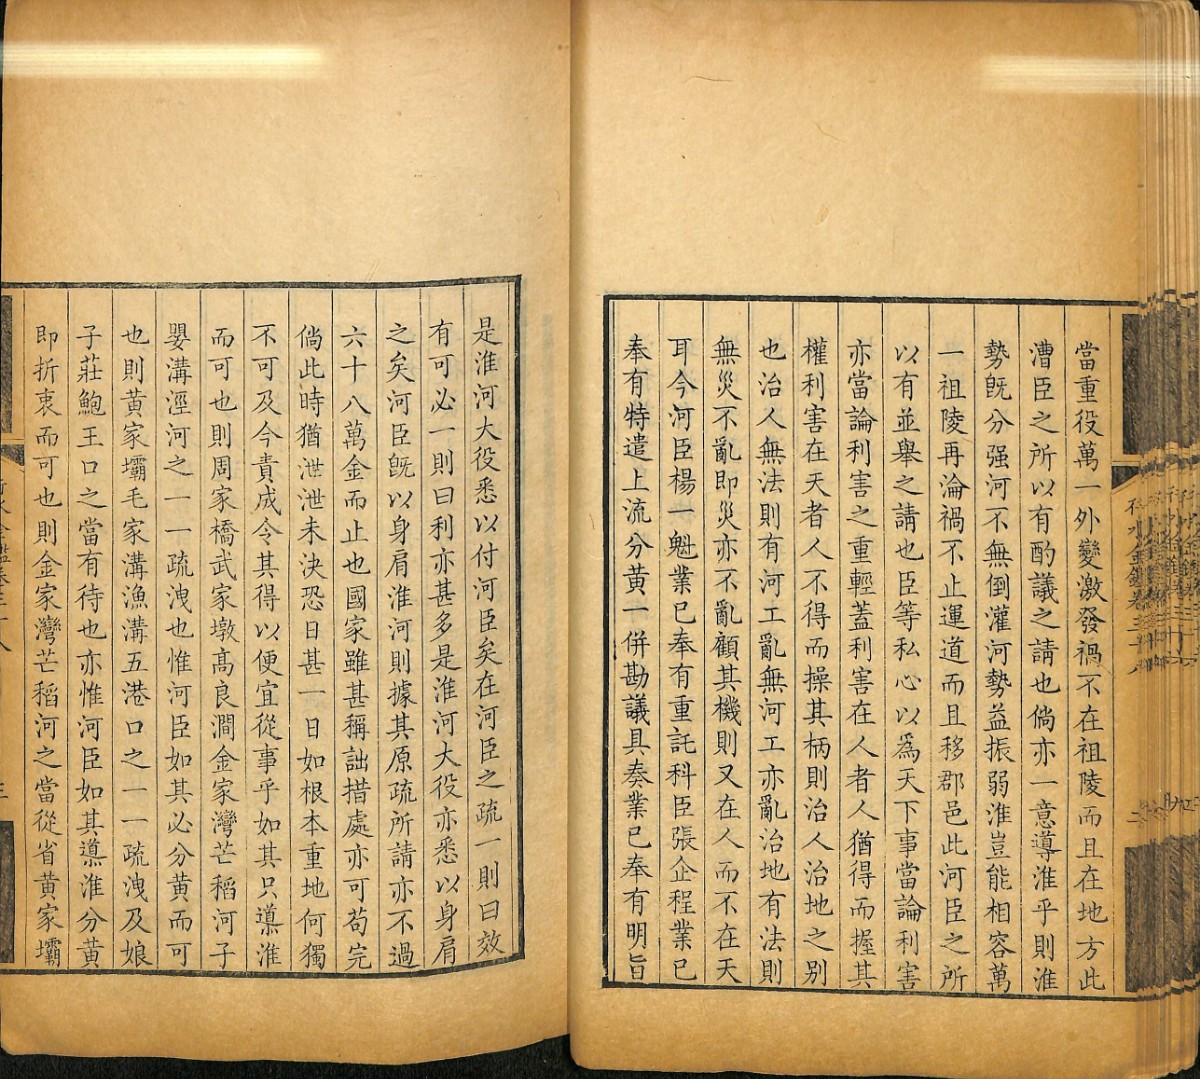 當重役萬一外變激發禍不在祖陵而且在地方此
漕臣之所以有酌議之請也倘亦一意導淮乎則淮
勢旣分强河不無倒灌河勢益振弱淮豈能相容萬
一祖陵再淪禍不止運道而且移郡邑此河臣之所
以有並舉之請也臣等私心以爲天下事當論利害
亦當論利害之重輕蓋利害在人者人猶得而握其
權利害在天者人不得而操其柄則治人治地之别
也治人無法則有河工亂無河工亦亂治地有法則
無災不亂即災亦不亂顧其機則又在人而不在天
耳今河臣楊一魁業已奉有重託科臣張企程業已
奉有特遣上流分黄一併勘議具奏業已奉有明旨
是淮河大役悉以付河臣矣在河臣之疏一則曰效
有可必一則曰利亦甚多是淮河大役亦悉以身肩
之矣河臣旣以身肩淮河則據其原疏所請亦不過
六十八萬金而止也國家雖甚稱詘措處亦可苟完
倘此時猶泄泄未決恐日甚一日如根本重地何獨
不可及今責成令其得以便宜從事乎如其只導淮
而可也則周家橋武家墩高良澗金家灣芒稻河子
嬰溝涇河之一一疏洩也惟河臣如其必分黄而可
也則黄家壩毛家溝漁溝五港口之一一疏洩及娘
子莊鮑王口之當有待也亦惟河臣如其導淮分黄
即折衷而可也則金家灣芒稻河之當從省黄家壩